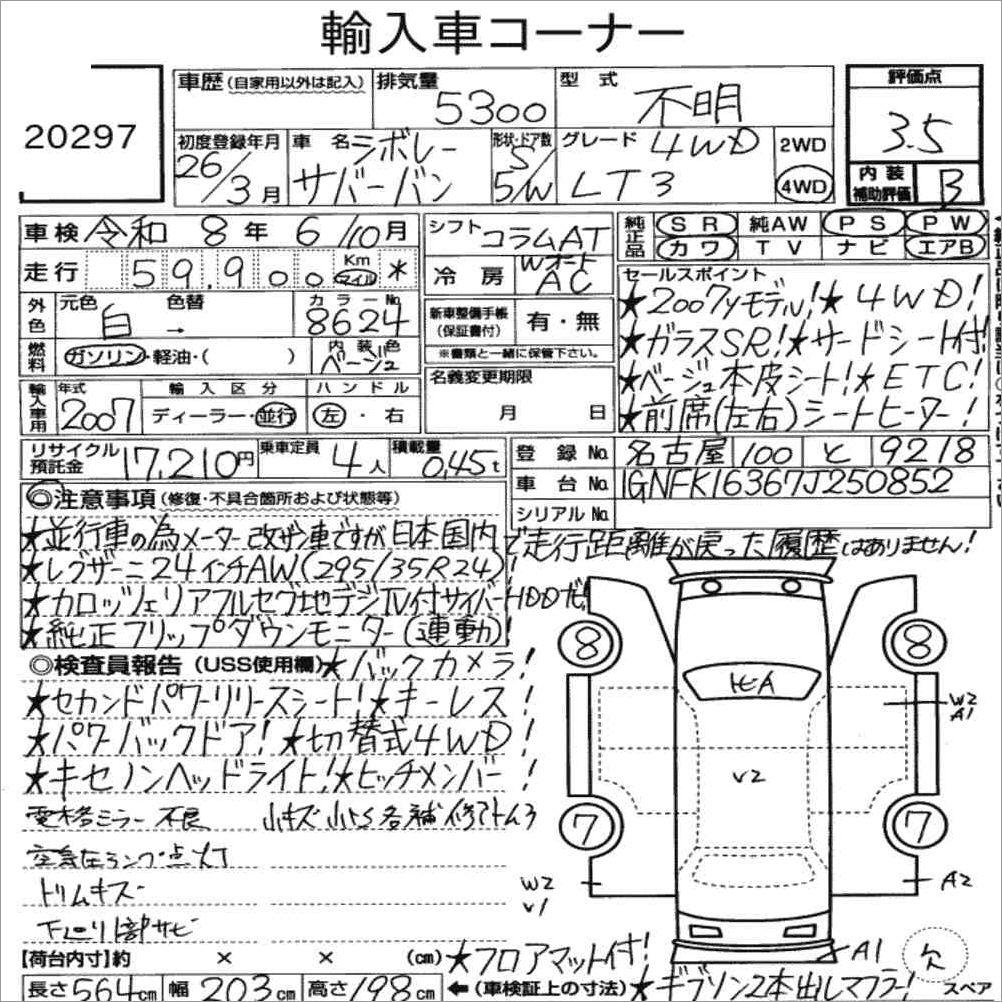 輸入車コーナー
20297
車歴(自家用以外は記入) 排気量 5300 型式 不明 評価点 3.5
初度登録年月 26/3月 車名 シボレー サバーバン 形状・ドア数 5/5/W グレード 4WD LT3 2WD 4WD 内装補助評価 B
車検 令和 8年 6/10月 シフト コラムAT 純正品 SR 純AW PS PW
カワ TV ナビ エアB
走行 59,900 Km マイル * 冷房 Wオート AC
外色 元色 白 色替 → カラーNo. 8624 新車整備手帳(保証書付) 有・無
※書類と一緒に保管下さい。
燃料 ガソリン・軽油・( ) 内装色 ベージュ
名義変更期限 月 日
輸入車用 年式 2007 輸入区分 ディーラー・並行 ハンドル 左・右
セールスポイント
★2007yモデル!★4WD!
★ガラスSR!★サードシート付!
★ベージュ本皮シート!★ETC!
★前席(左右)シートヒーター!
リサイクル預託金 17,210円 乗車定員 4人 積載量 0,45t
登録No. 名古屋 100 と 9218
車台No. 1GNFK16367J250852
シリアルNo.
◎注意事項(修復・不具合箇所および状態等)
★並行車の為メーター改ザン車ですが日本国内で走行距離が戻った履歴はありません!
★レグザーニ24インチAW(295/35R24)!
★カロッツェリアフルセグ地デジTV付サイバーHDDナビ!
★純正フリップダウンモニター(連動)!
◎検査員報告(USS使用欄)★バックカメラ!
★セカンドパワーリリースシート!★キーレス!
★パワーバックドア!★切替式4WD!
★キセノンヘッドライト!★ヒッチメンバー!
電格ミラー不良 小キズ 小ヘS 各補修アトムラ
空気圧ランプ点灯
トリムキズ
下廻り1部サビ
8 8
ヒA
W2
A1
V2
7 7
W2
V1
A2
A1
欠
スペア
【荷台内寸】約 × × (cm) ★フロアマット付!
長さ564cm 幅203cm 高さ198cm ←(車検証上の寸法)★ギブソン2本出しマフラー!